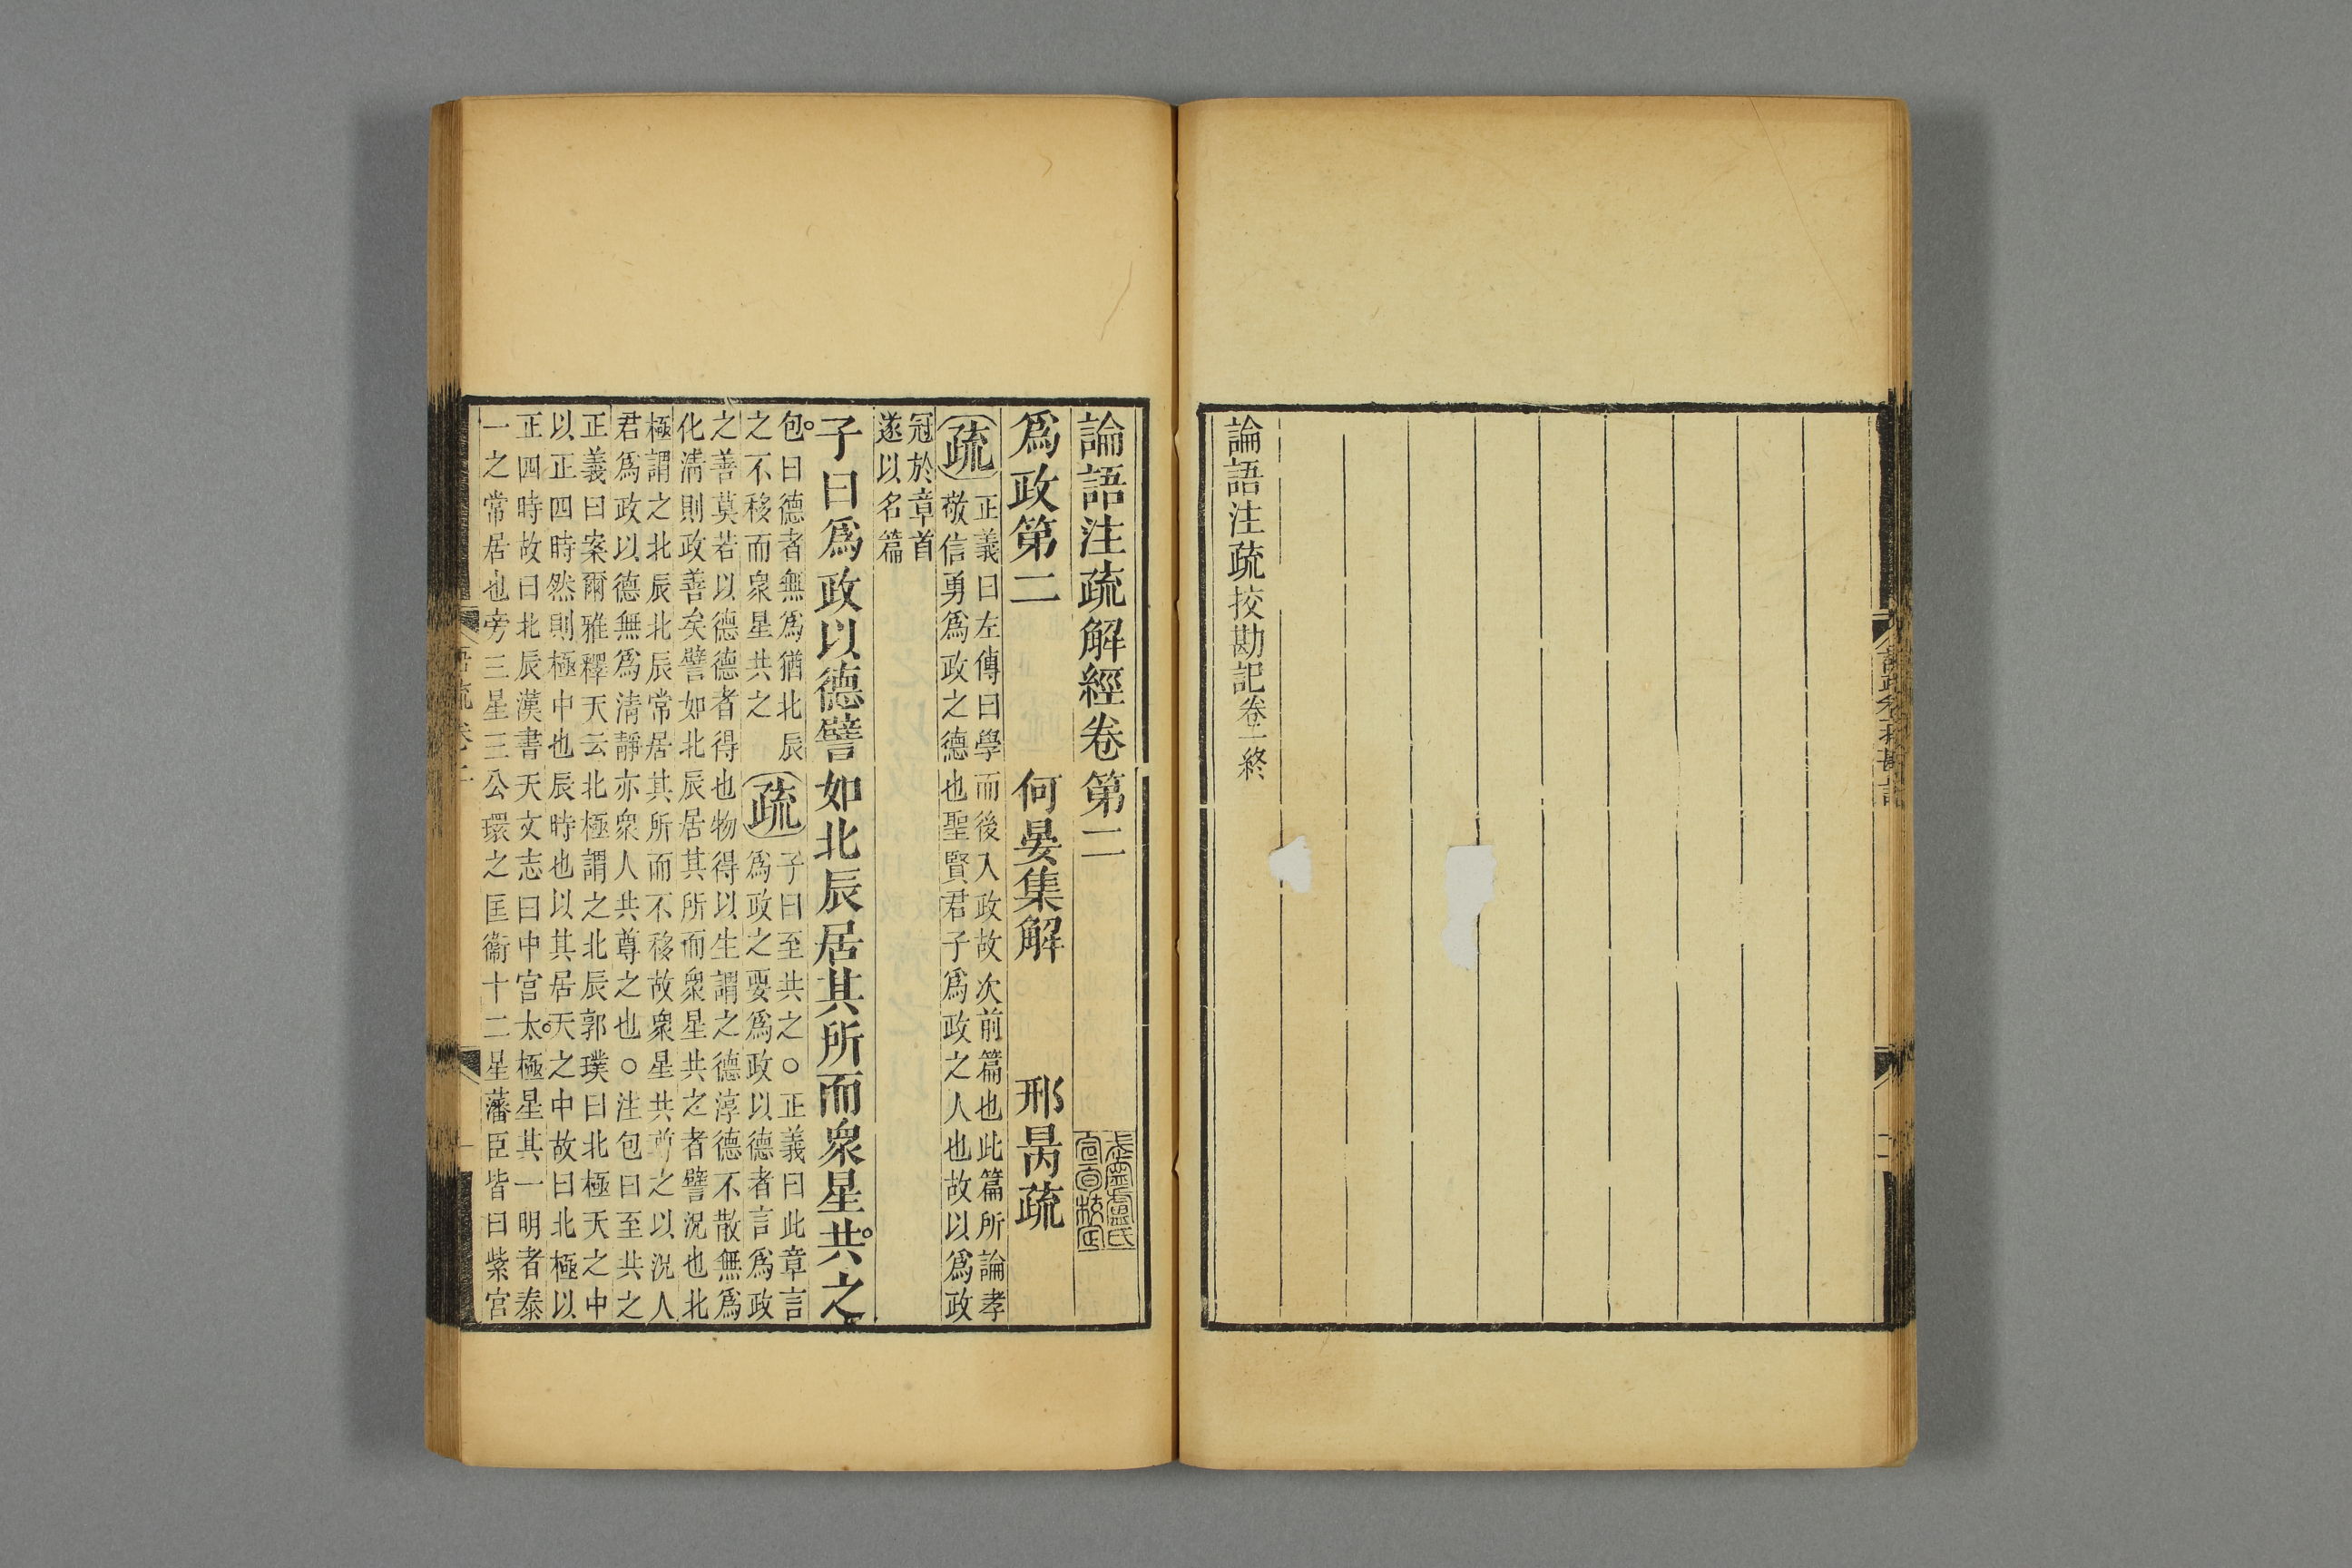 論語注疏挍勘記卷一終
論語注疏解經卷第二
爲政第二　何晏集解　邢昺疏
疏
正義曰左傳曰學而後入政故次前篇也此篇所論孝
敬信勇爲政之德也聖賢君子爲政之人也故以爲政
冠於章首
遂以名篇
子曰爲政以德譬如北辰居其所而衆星共之
包曰德者無爲猶北辰
之不移而衆星共之
疏
子曰至共之○正義曰此章言
爲政之要爲政以德者言爲政
之善莫若以德德者得也物得以生謂之德淳德不散無爲
化淸則政善矣譬如北辰居其所而衆星共之者譬況也北
極謂之北辰北辰常居其所而不移故衆星共尊之以況人
君爲政以德無爲淸靜亦衆人共尊之也○注包曰至共之
正義曰案爾雅釋天云北極謂之北辰郭璞曰北極天之中
以正四時然則極中也辰時也以其居天之中故曰北極以
正四時故曰北辰漢書天文志曰中宮太極星其一明者泰
一之常居也旁三星三公環之匡衞十二星藩臣皆曰紫宮